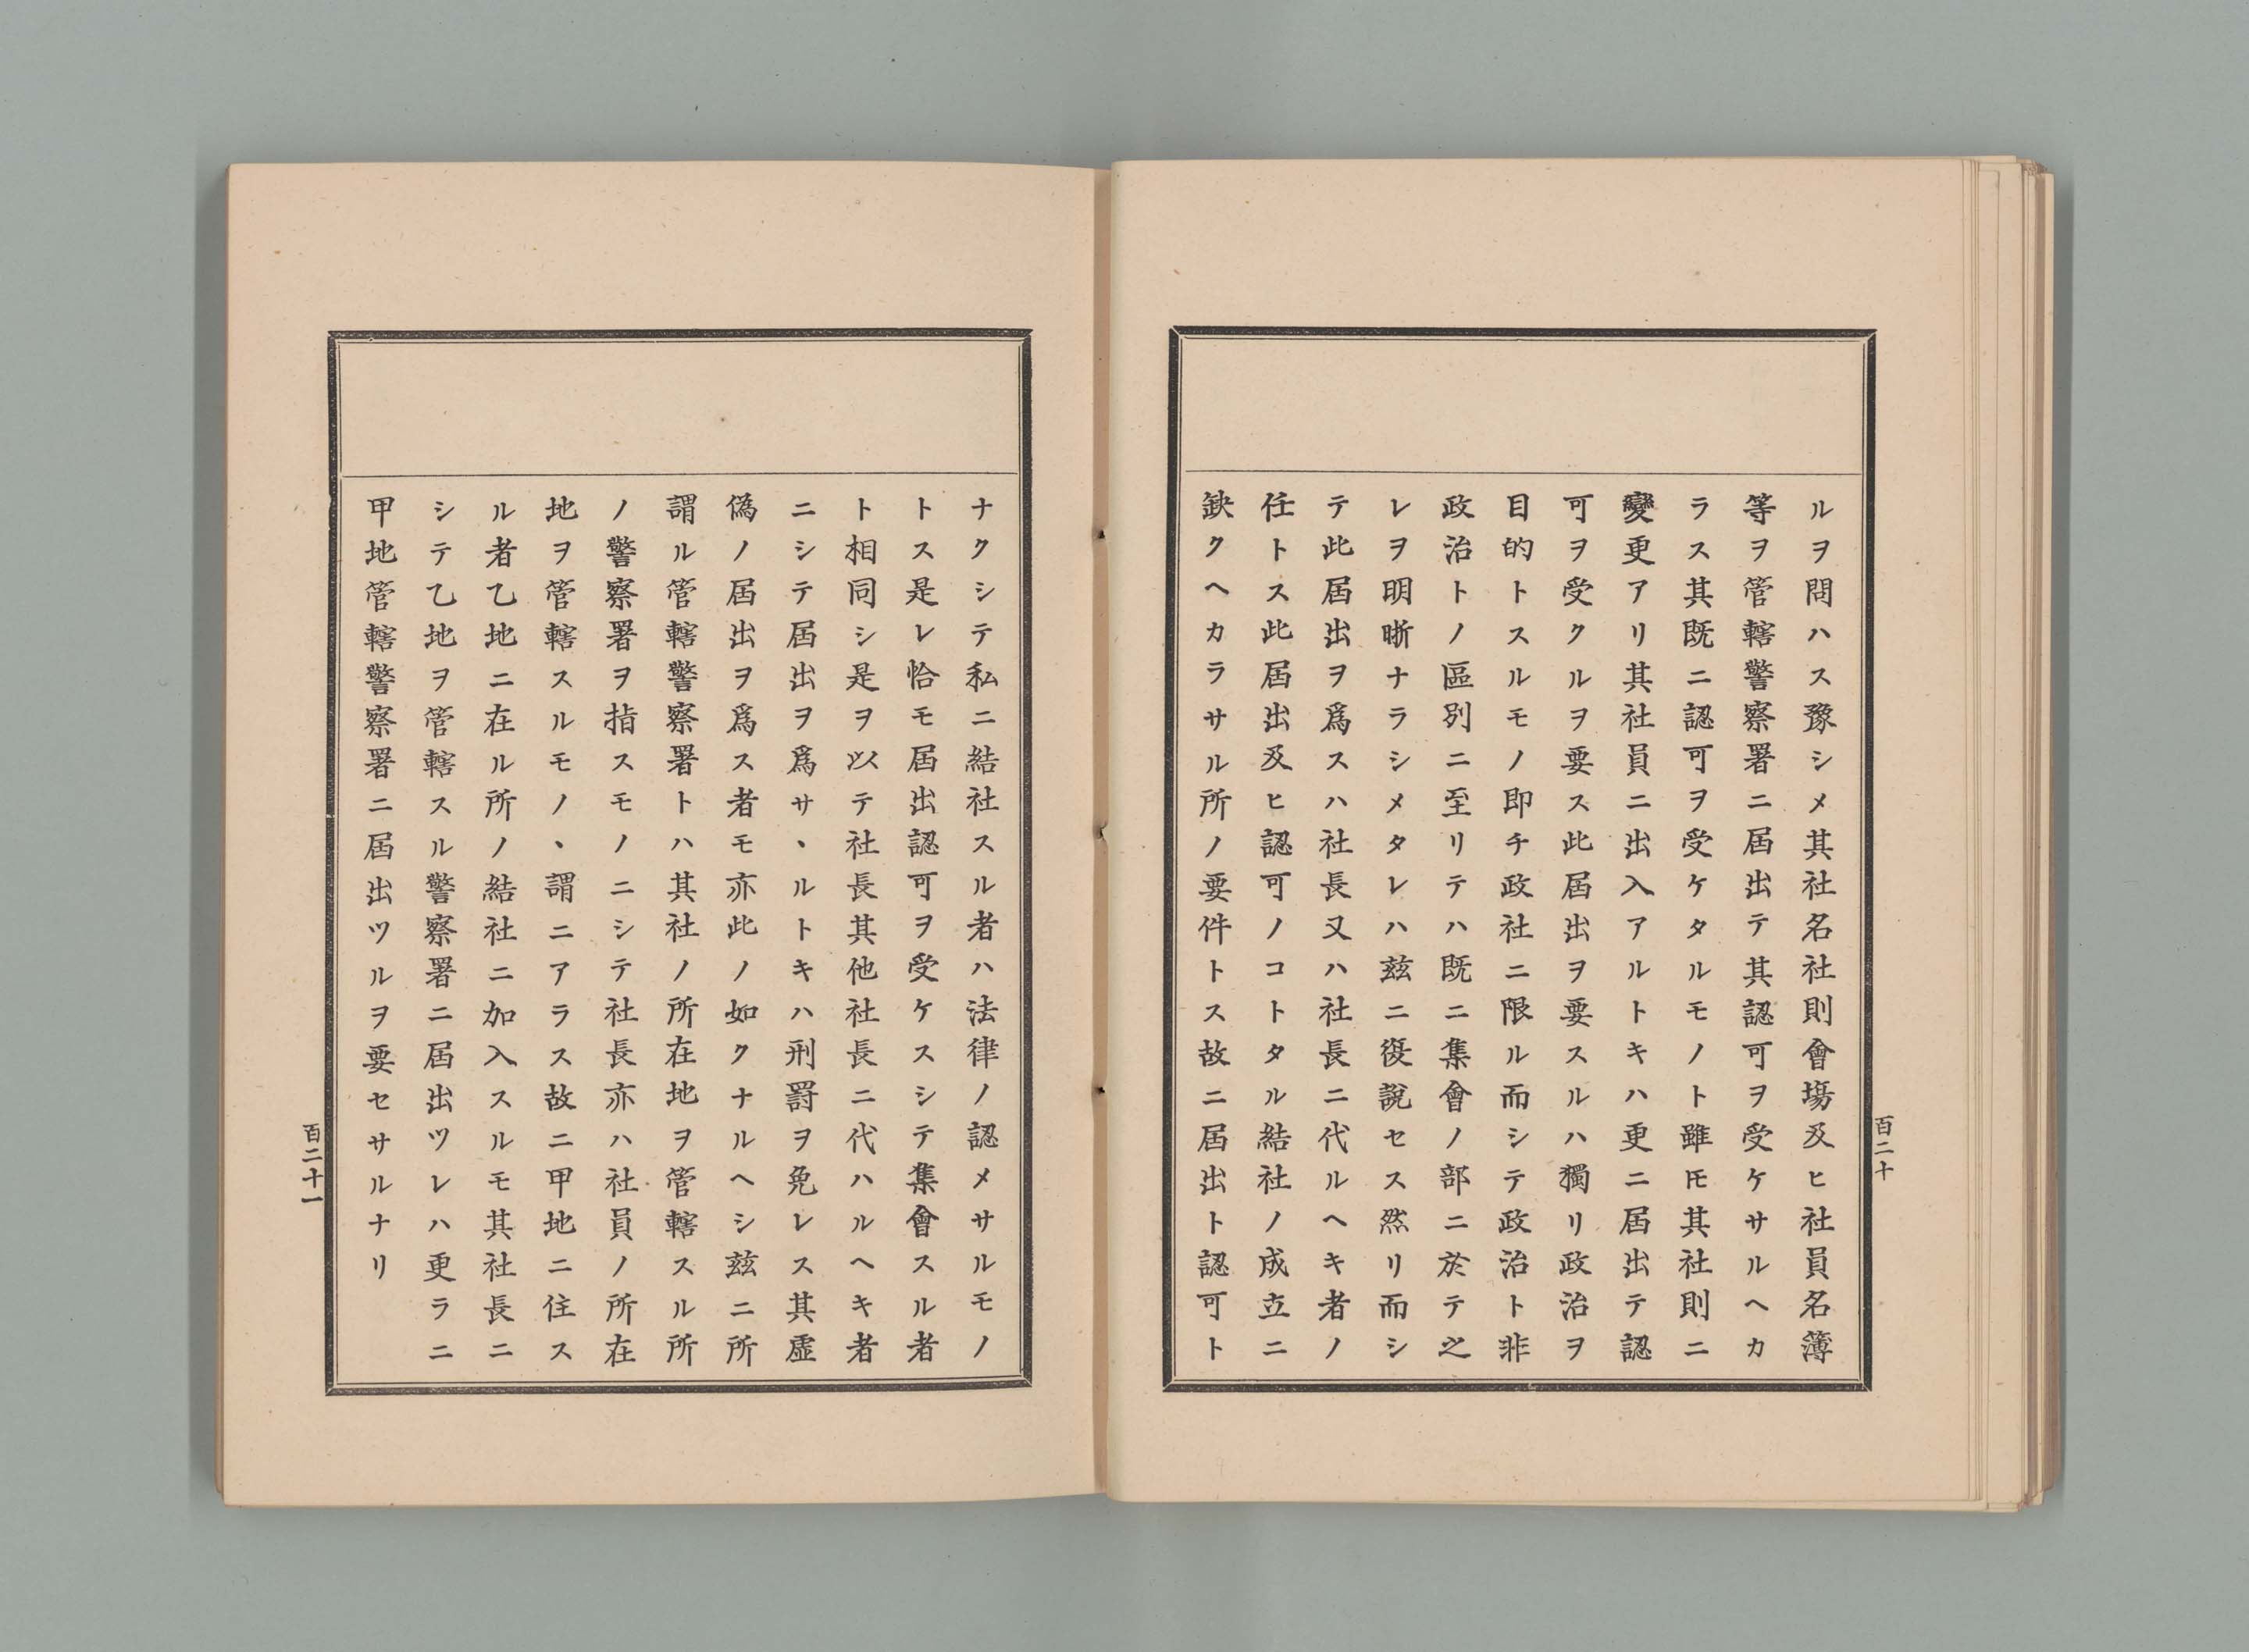 ルヲ問ハス豫シメ其社名社則會塲及ヒ社員名簿
等ヲ管轄警察署ニ屆出テ其認可ヲ受ケサルヘカ
ラス其既ニ認可ヲ受ケタルモノト雖𪜈其社則ニ
變更アリ其社員ニ出入アルトキハ更ニ屆出テ認
可ヲ受クルヲ要ス此屆出ヲ要スルハ獨リ政治ヲ
目的トスルモノ即チ政社ニ限ル而シテ政治ト非
政治トノ區別ニ至リテハ既ニ集會ノ部ニ於テ之
レヲ明晣ナラシメタレハ茲ニ復說セス然リ而シ
テ此屆出ヲ爲スハ社長又ハ社長ニ代ルヘキ者ノ
任トス此屆出及ヒ認可ノコトタル結社ノ成立ニ
缺クヘカラサル所ノ要件トス故ニ屆出ト認可ト
百二十
ナクシテ私ニ結社スル者ハ法律ノ認メサルモノ
トス是レ恰モ屆出認可ヲ受ケスシテ集會スル者
ト相同シ是ヲ以テ社長其他社長ニ代ハルヘキ者
ニシテ屆出ヲ爲サヽルトキハ刑罰ヲ免レス其虛
僞ノ屆出ヲ爲ス者モ亦此ノ如クナルヘシ茲ニ所
謂ル管轄警察署トハ其社ノ所在地ヲ管轄スル所
ノ警察署ヲ指スモノニシテ社長亦ハ社員ノ所在
地ヲ管轄スルモノヽ謂ニアラス故ニ甲地ニ住ス
ル者乙地ニ在ル所ノ結社ニ加入スルモ其社長ニ
シテ乙地ヲ管轄スル警察署ニ屆出ツレハ更ラニ
甲地管轄警察署ニ屆出ツルヲ要セサルナリ
百二十一